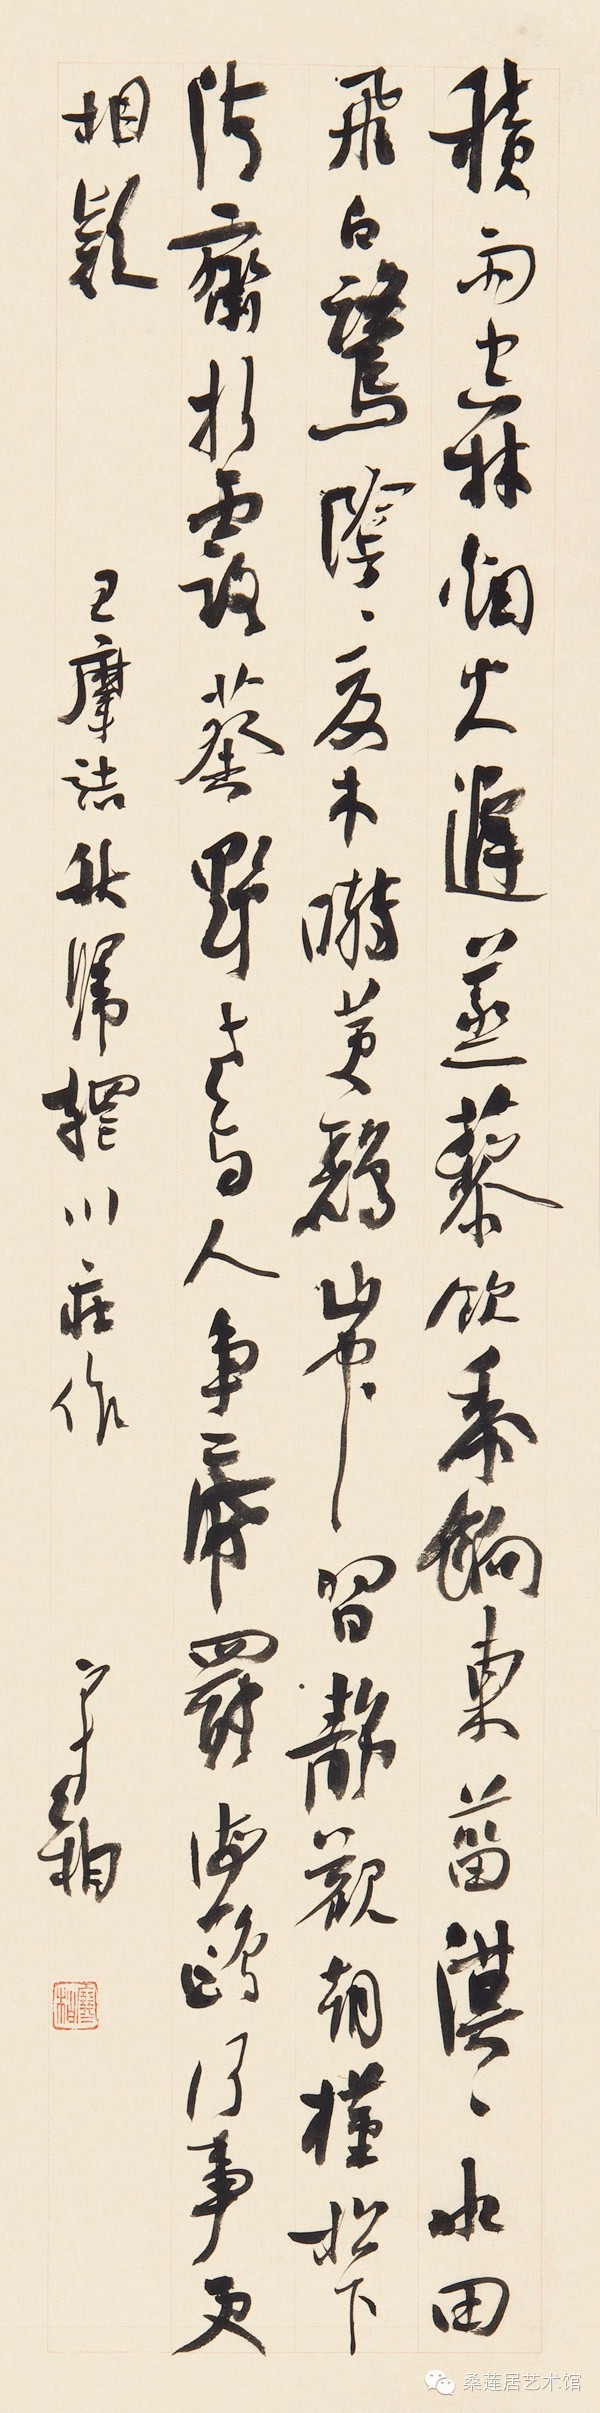 積雨空林烟火遲蒸藜炊黍餉東菑漠〻水田
飛白鷺陰〻夏木囀黄鸝山中習静觀朝槿松下
清齋折露葵野老與人争席罷海鷗何事更
相疑
王摩詰秋歸輞川莊作
桑莲居艺术馆